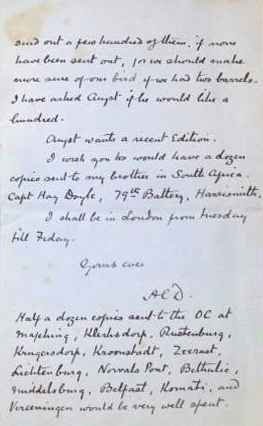 send out a few hundred of them, if none
have been sent out, for we should make
more sure of our bird if we had two barrels.
I have asked Angst if he would like a
hundred.
Angst wants a recent Edition.
I wish you would have a dozen
copies sent to my brother in South Africa.
Capt Hay Doyle, 79th Battery, Harrismith.
I shall be in London from Tuesday
till Friday.
Yours ever
ACD.
Half a dozen copies sent to the OC at
Mafeking, Klerksdorp, Rustenburg,
Krugersdorp, Kroonstadt, Zeerust,
Lichtenburg, Norvals Pont, Bethulie,
Middelsburg, Belfast, Komati, and
Vereeningen would be very well spent.